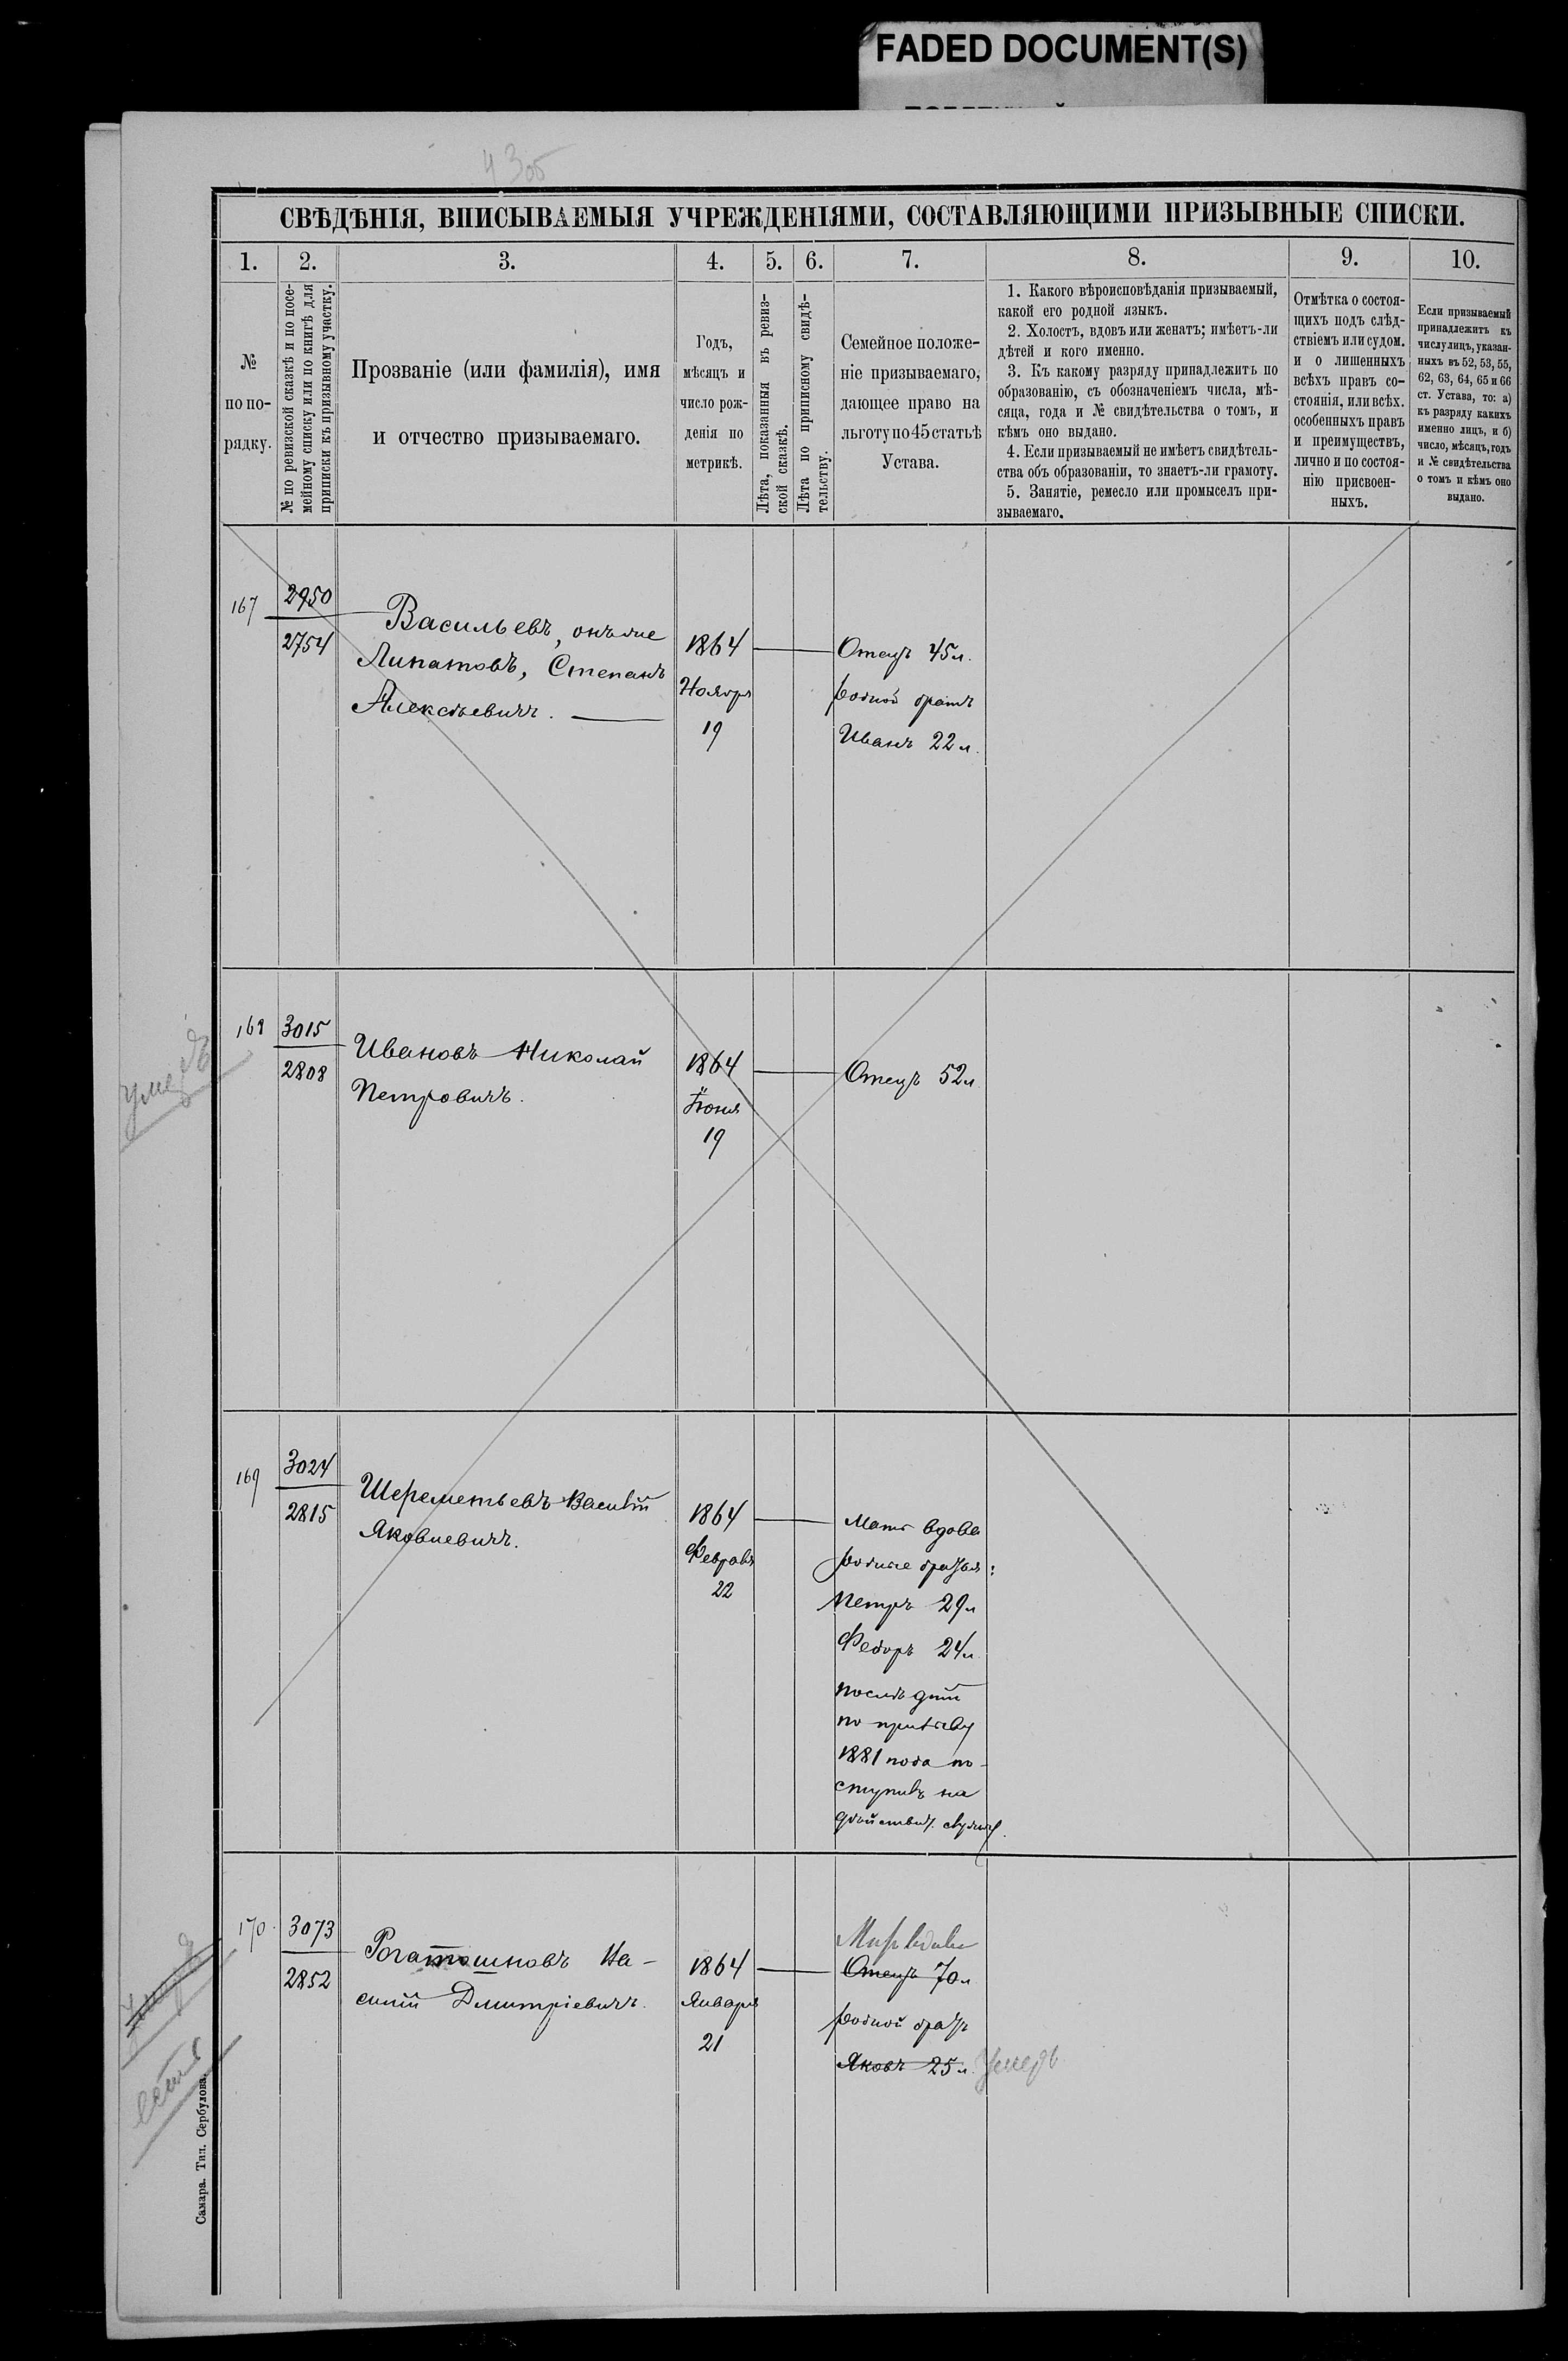 FADED DOCUMENT(S)
43об
СВѢДѢНІЯ, ВПИСЫВАЕМЫЯ УЧРЕЖДЕНІЯМИ, СОСТАВЛЯЮЩИМИ ПРИЗЫВНЫЕ СПИСКИ.
1.
2.
3.
4.
5.
6.
7.
8.
9.
10.
№
по по-
рядку.
№ по ревизской сказкѣ и по посе-
мейному списку или по книгѣ для
приписки къ призывному участку.
Прозваніе (или фамилія), имя
и отчество призываемаго.
Годъ,
мѣсяцъ и
число рож-
денія по
метрикѣ.
Лѣта, показанныя въ ревиз-
ской сказкѣ.
Лѣта по приписному свидѣ-
тельству.
Семейное положе-
ніе призываемаго,
дающее право на
льготу по 45 статьѣ
Устава.
1. Какого вѣроисповѣданія призываемый,
какой его родной языкъ.
2. Холостъ, вдовъ или женатъ; имѣетъ-ли
дѣтей и кого именно.
3. Къ какому разряду принадлежитъ по
образованію, съ обозначеніемъ числа, мѣ-
сяца, года и № свидѣтельства о томъ, и
кѣмъ оно выдано.
4. Если призываемый не имѣетъ свидѣтель-
ства объ образованіи, то знаетъ-ли грамоту.
5. Занятіе, ремесло или промыселъ при-
зываемаго.
Отмѣтка о состоя-
щихъ подъ слѣд-
ствіемъ или судом.
и о лишенныхъ
всѣхъ правъ со-
стоянія, или всѣх.
особенныхъ правъ
и преимуществъ,
лично и по состоя-
нію присвоен-
ныхъ.
Если призываемый
принадлежитъ къ
числу лицъ, указан-
ныхъ въ 52, 53, 55,
62, 63, 64, 65 и 66
ст. Устава, то: а)
къ разряду какихъ
именно лицъ, и б)
число, мѣсяцъ, годъ
и № свидѣтельства
о томъ и кѣмъ оно
выдано.
167
2950
2754
Васильевъ, онъ же
Липатовъ, Степанъ
Алексѣевичъ.
1864
Ноября
19
Отецъ 45 л.
родной братъ
Иванъ 22 л.
умеръ
168
3015
2808
Ивановъ Николай
Петровичъ.
1864
Іюня
19
Отецъ 52 л.
169
3024
2815
Шереметьевъ Василій
Яковлевичъ.
1864
Февраля
22
Мать вдова
родные братья:
Петръ 29 л
Федоръ 24 л.
послѣдній
по призыву
1881 года по-
ступилъ на
дѣйствит. службу.
170.
3073
2852
Дмитріевичъ.
1864
Января
21
Отецъ 70 л
родной братъ
Яковъ 25 л. Умеръ
есть
Самара. Тип. Сербулова.